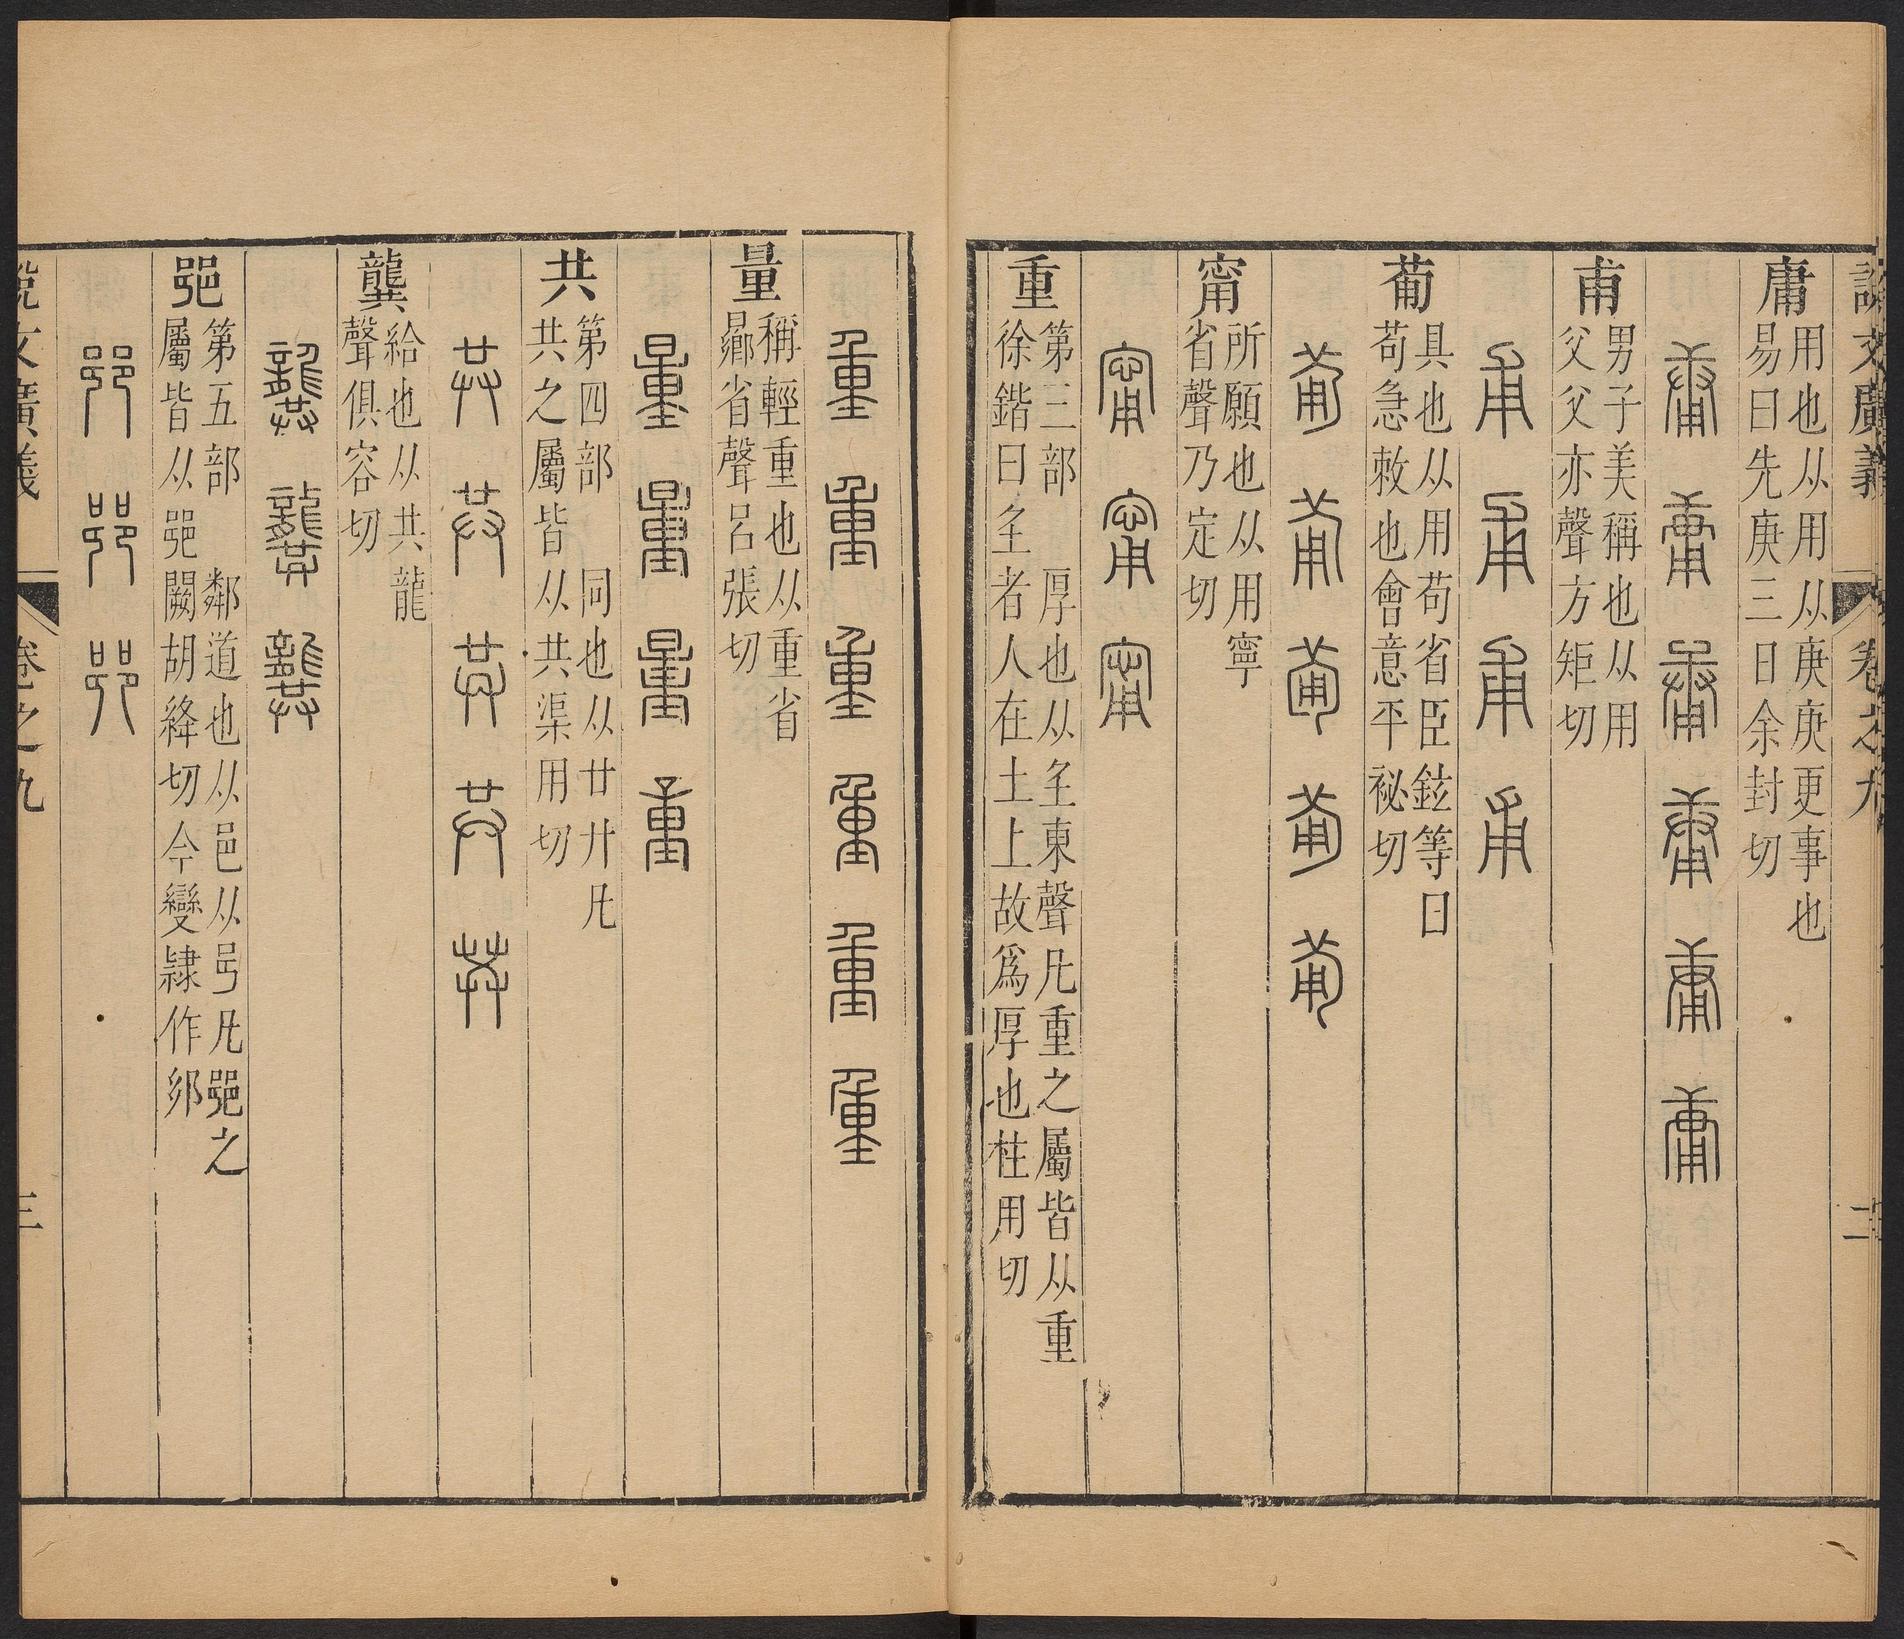 說文廣義 卷之九 二
庸
用也从用从庚庚更事也
易曰先庚三日余封切
甫
男子美稱也从用
父父亦聲方矩切
葡
具也从用苟省臣鉉等曰
苟急敕也會意平祕切
甯
所願也从用寧
省聲乃定切
重
第三部 厚也从𡈼東聲凡重之屬皆从重
徐鍇曰𡈼者人在土上故爲厚也柱用切
量
稱輕重也从重省
曏省聲呂張切
共
第四部 同也从廿廾凡
共之屬皆从共渠用切
龔
給也从共龍
聲俱容切
𨛜
第五部 鄰道也从邑从𠨍凡𨛜之
屬皆从𨛜闕胡絳切今變隸作𨙨
說文廣義 卷之九 三